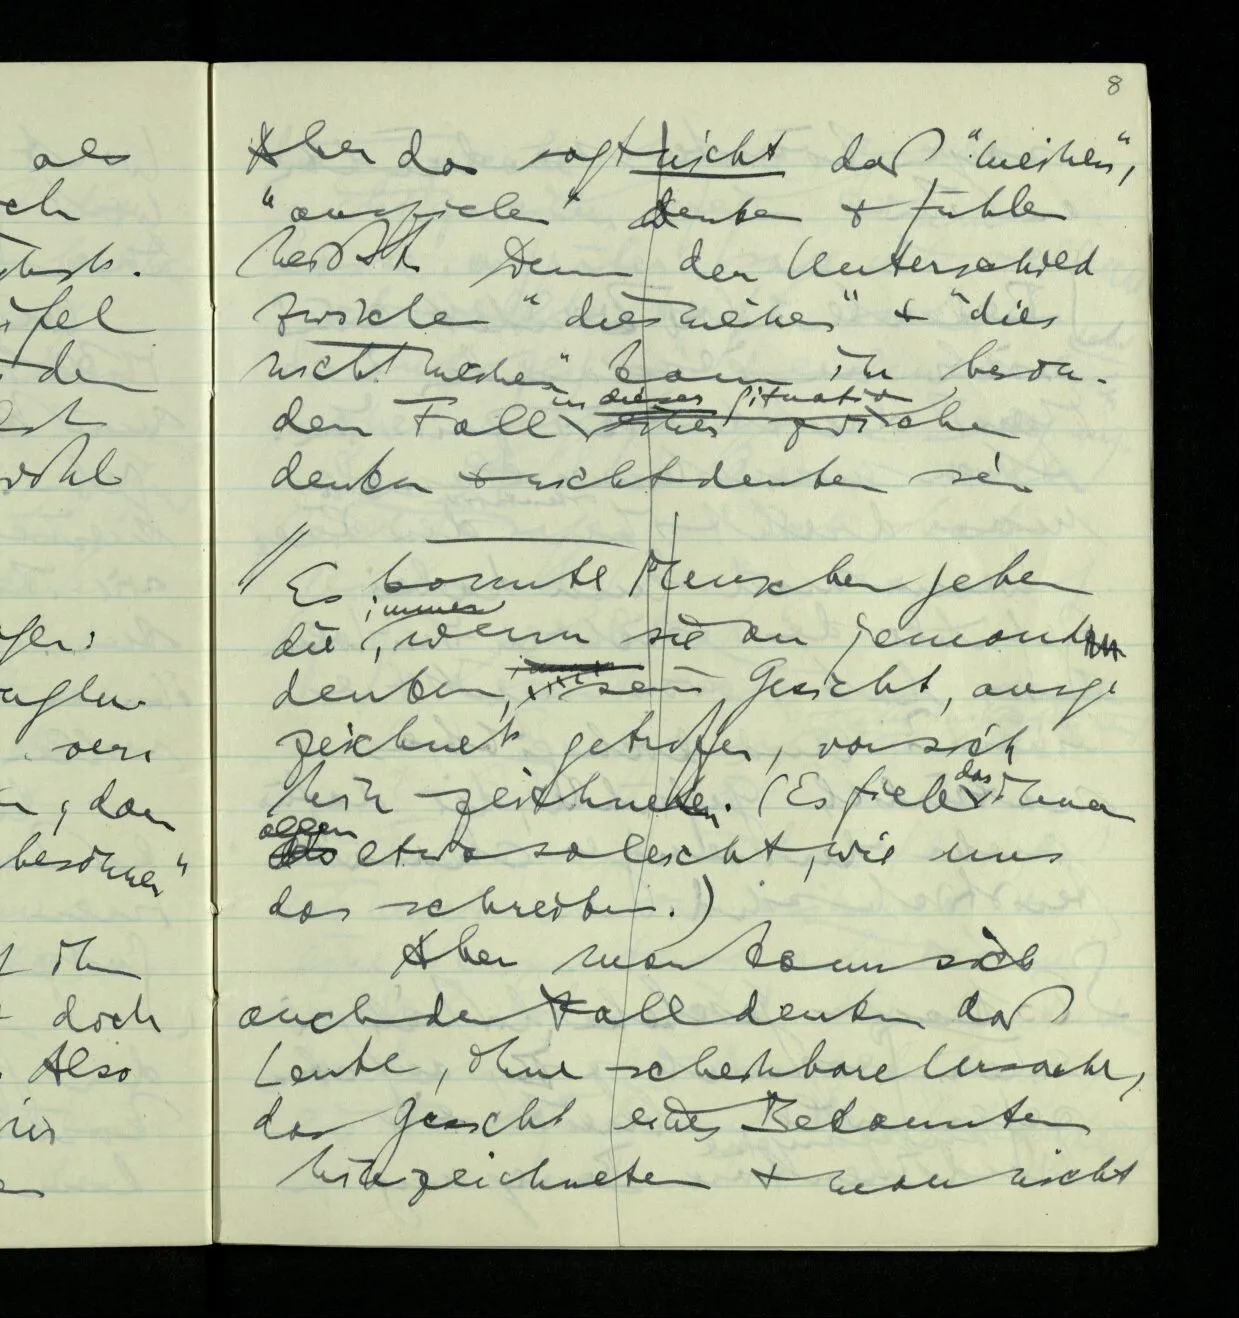 8
als
ch
ifel
den
wohl
ver
, dan
besönnen"
ihm
doch
Also
Aber das sagt nicht daß "meinen",
"anspielen" denken & fühlen
heißt. Denn der Unterschied
zwischen "dies meinen" & "dies
nicht meinen" kann im beson-
deren Fall in dieser Situation
zwischen
denken & nicht denken sein
// Es könnte Menschen geben
die, immer wenn sie an jemand
denken, sein Gesicht, ausge
zeichnet getroffen, vor sich
hin zeichneten. (Es fiele das ihnen
allen etwa so leicht, wie uns
das schreiben.)
Aber man kann sich
auch den Fall denken daß
Leute, ohne scheinbare Ursache,
das Gesicht eines Bekannten
hinzeichneten & man nicht